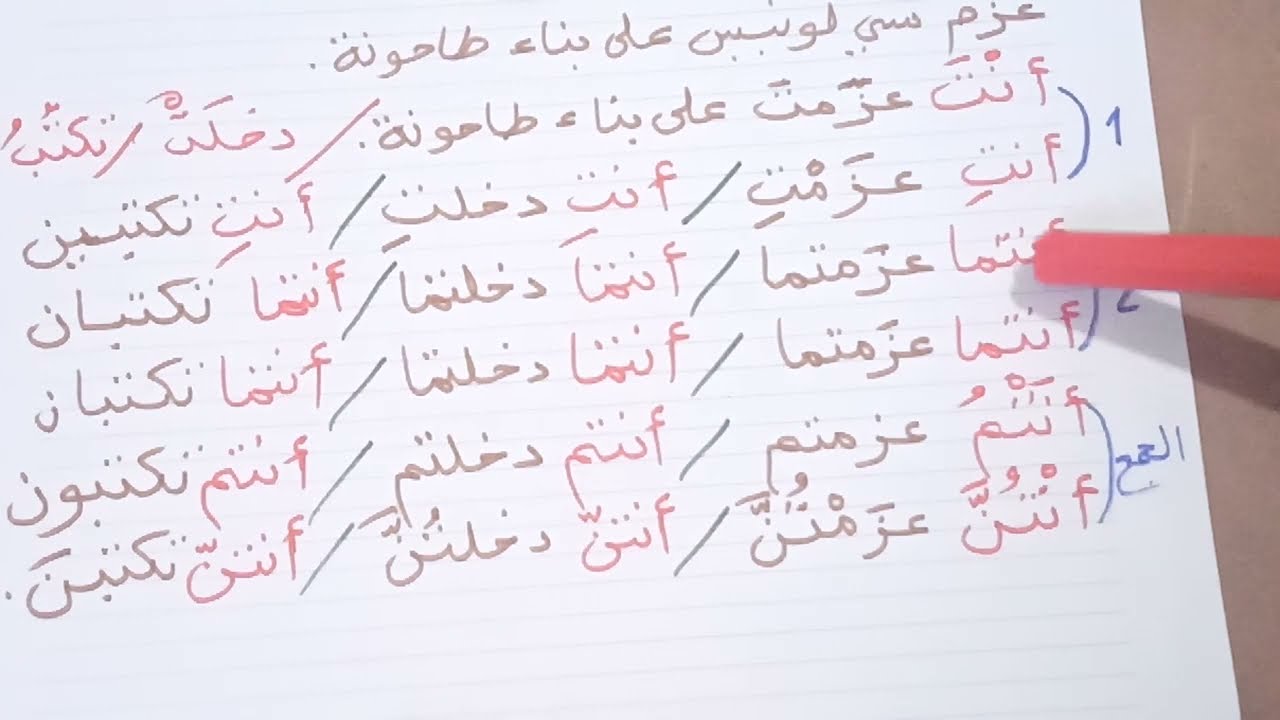 عزم سي لونيس على بناء طاحونة.
أنْتَ عزَمتَ على بناء طاحونة. / دخلتَ / تكتبُ
1
أنتِ عزَمْتِ / أنتِ دخلتِ / أنتِ تكتبين
أنتما عزَمتما / أنتما دخلتما / أنتما تكتبان
2
أنتما عزَمتما / أنتما دخلتما / أنتما تكتبان
أنْتُمُ عزمتم / أنتم دخلتم / أنتم تكتبون
الجمع
أنْتُنَّ عزَمْتُنَّ / أنتنّ دخلتُنَّ / أنتنّ تكتبنَ.